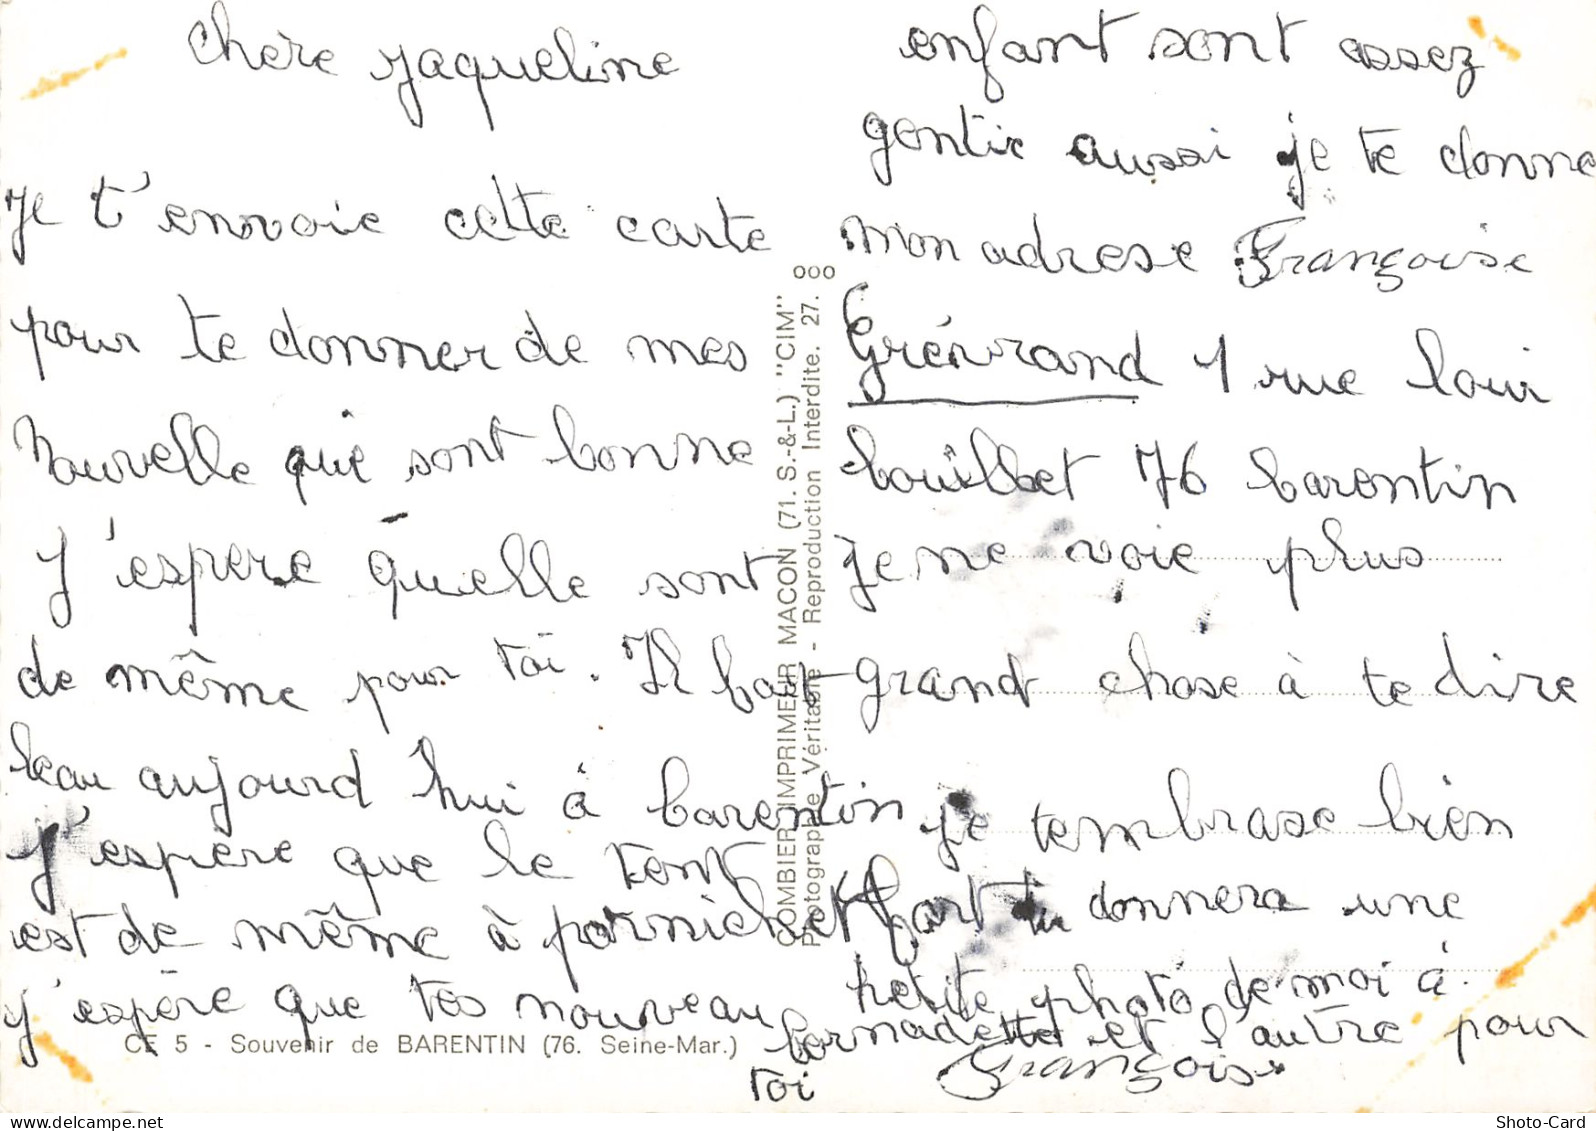 Chere jaqueline
Je t'envoie cette carte
pour te donner de mes
Nouvelle que sont bonne
J'espere quelle sont
de même pour toi. Il fait
beau aujourd hui à barentin
J'espère que le temps
est de même à pornichet
j'espère que tes nouveau
enfant sont assez
gentil aussi je te donne
mon adrese Françoise
Grévrand 1 rue louis
bouilhet 76 barentin
je ne voie plus
grand chose à te dire
je tembrase bien
fort tu donnera une
petite photo de moi à
bernadette et l'autre pour
toi
Françoise
COMBIER IMPRIMEUR MACON (71. S.-&-L.) "CIM"
Photographie Véritable - Reproduction Interdite. 27. 000
CE 5 - Souvenir de BARENTIN (76. Seine-Mar.)
Shoto-Card